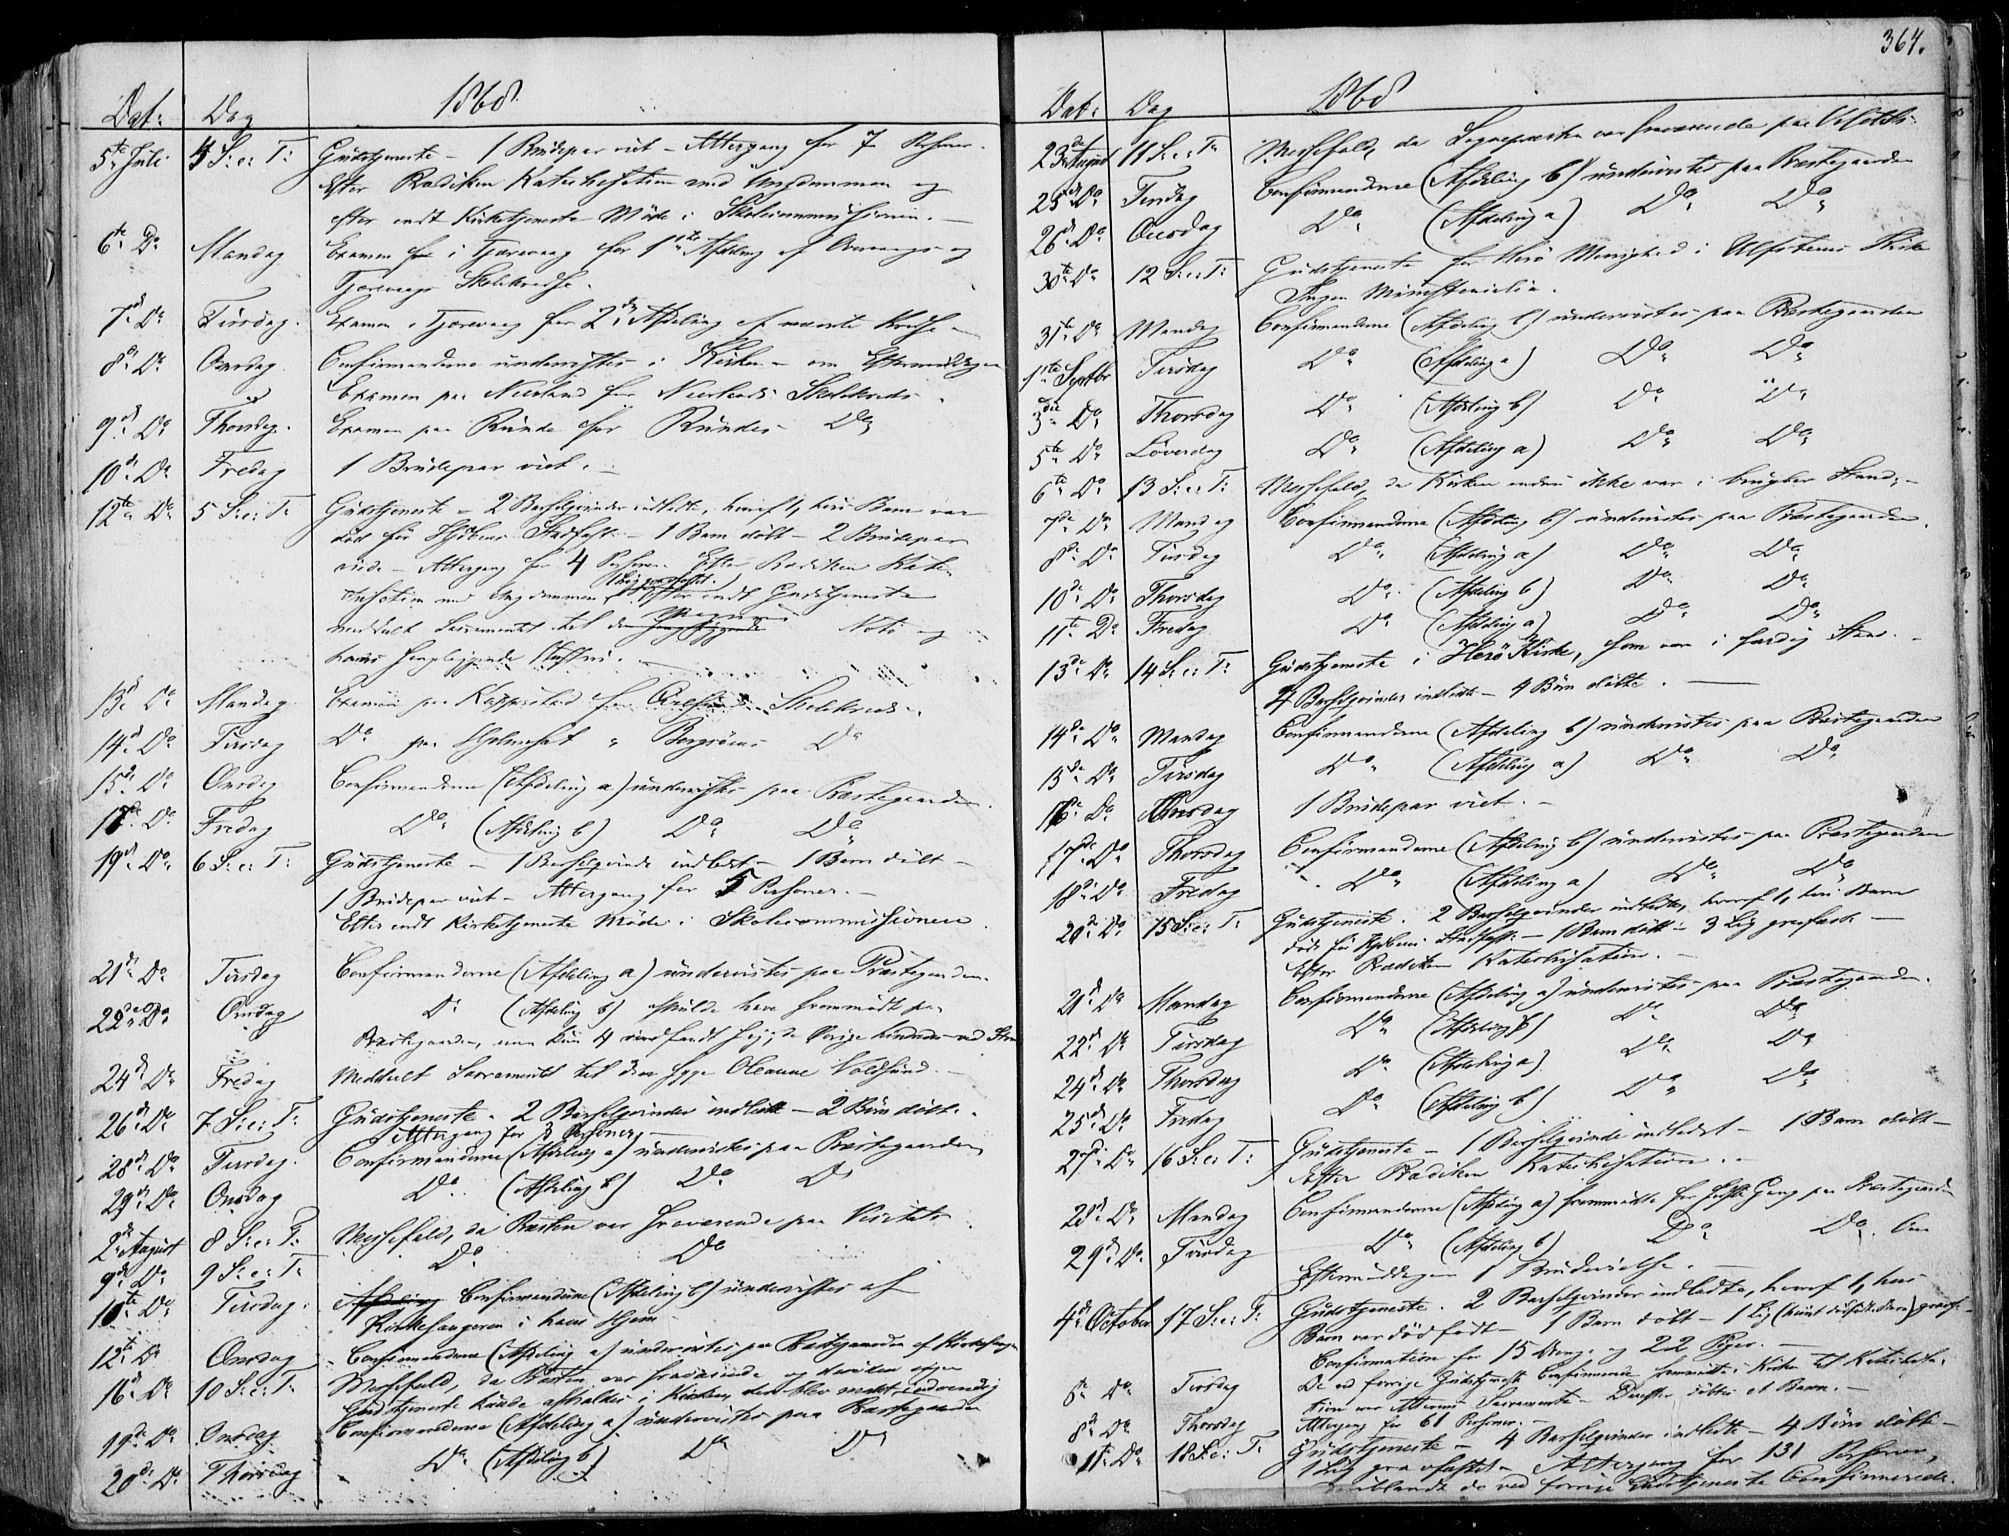 Dat: Dag 1868
5te Juli 4 S: e: T: Gudstjeneste – 1 Brudepar viet – Altergang for 7 Personer.
Efter Prædiken Katechisation med Ungdommen og
efter endt Kirketjeneste Møde i Skolecommissionen. –
6te Do Mandag Examen i Tjørevaag for 1ste Afdeling af og
Tjørevaags Skolekredse.
7de Do Tirsdag. Examen i Tjørevaag for 2den Afdeling af Kredse
8de Do Onsdag Confirmanderne undervistes i Kirken – om Eftermiddagen
Examen paa Nerland for Nerlands Skolekreds.
9de Do Thorsdag. Examen paa Runde for Rundes Do
10de Do Fredag 1 Brudepar viet. –
12te Do 5 S: e: T: Gudstjeneste – 2 Barselqvinder indledte, hvoraf 1, hvis Barn var
død før Stadfest. – 1 Barn døbt – 2 Brudepar
viede – Altergang for 4 Personer. Efter Prædiken Kate-
chisation med Ungdommen Efter endt Gudstjeneste
meddelt Sacramentet til og
hans sengeliggende
13de Do Mandag Examen paa Kopperstad for Skolekreds.
14de Do Tirsdag Do paa Holmesæt " Do
15de Do Onsdag Confirmanderne (Afdeling a) undervistes paa Præstegaarden.
17de Do Fredag Do (Afdeling b) Do Do
19de Do 6 S: e: T: Gudstjeneste – 1 Barselqvinde indledt – 1 Barn døbt –
1 Brudepar viet – Altergang for 5 Personer. –
Efter endt Kirketjeneste Møde i Skolecommissionen.
21de Do Tirsdag Confirmanderne (Afdeling a) undervistes paa Præstegaarden.
22de Do Onsdag Do (Afdeling b) skulde have fremmødt paa
Præstegaarden, men kun 4 indfandt sig, de Øvrige hindrede ved Storm
24de Do Fredag Meddelt Sacramentet til den syge Oleanne Voldsund. –
26de Do 7 S: e: T: Gudstjeneste. 2 Barselqvinder indledte – 2 Børn døbte.
Altergang for 3 Personer. –
28de Do Tirsdag. Confirmanderne (Afdeling a) undervistes paa Præstegaarden
29de Do Onsdag Do (Afdeling b) Do Do
2den August 8 S: e: T: Messefald, da Præsten var fraværende paa Visitats
9de Do 9 S: e: T: Do Do
11te Do Tirsdag. Afdeling Confirmanderne (Afdeling b) undervistes af
Kirkesangeren i hans Hjem
12te Do Onsdag Confirmanderne (Afdeling a) undervistes paa Præstegaarden af Kirkesangeren
16de Do 10 S: e: T: Messefald, da Præsten var fraværende og
Gudstjeneste kunde afholdes i Kirken, den blev
19de Do Onsdag Confirmanderne (Afdeling a) undervistes paa Præstegaarden
20de Do Thorsdag Do (Afdeling b) Do Do
364.
Dat: Dag 1868
23de August 11 S: e: T: Messefald, da Sognepræsten var fraværende paa Visitats.
25de Do Tirsdag Confirmanderne (Afdeling b) undervistes paa Præstegaarden
26de Do Onsdag Do (Afdeling a) Do Do
30te Do 12 S: e: T: Gudstjeneste for Herø Menighed i Ulfsteens Kirke
Ingen Ministerialia.
31te Do Mandag Confirmanderne (Afdeling b) undervistes paa Præstegaarden
1ste Septbr Tirsdag Do (Afdeling a) Do Do
3die Do Thorsdag Do (Afdeling b) Do Do
5te Do Løverdag Do (Afdeling a) Do Do
6te Do 13 S: e: T: Messefald, da Kirken endnu ikke var i brugbar Stand. –
7de Do Mandag Confirmanderne (Afdeling b) undervistes paa Præstegaarden.
8de Do Tirsdag Do (Afdeling a) Do Do
10de Do Thorsdag Do (Afdeling b) Do Do
11te Do Fredag Do (Afdeling a) Do Do
13de Do 14 S: e: T: Gudstjeneste i Herø Kirke, som var i færdig Stand. –
4 Barselqvinder indledte – 4 Børn døbte. –
14de Do Mandag Confirmanderne (Afdeling b) undervistes paa Præstegaarden
15de Do Tirsdag Do (Afdeling a) Do Do
16de Do Onsdag 1 Brudepar viet. –
17de Do Thorsdag Confirmanderne (Afdeling b) undervistes paa Præstegaarden
18de Do Fredag Do (Afdeling a) Do Do
20de Do 15 S: e: T: Gudstjeneste. 2 Barselqvinder indledte, hvoraf 1, hvis Barn
døde før Stadfest. – 1 Barn døbt – 3 Lig gravfæst –
Efter Prædiken Katechisation. –
21de Do Mandag Confirmanderne (Afdeling a) undervistes paa Præstegaarden.
22de Do Tirsdag Do (Afdeling b) Do Do
24de Do Thorsdag Do (Afdeling a) Do Do
25de Do Fredag Do (Afdeling b) Do Do
27de Do 16 S: e: T: Gudstjeneste – 1 Barselqvinde indledt – 1 Barn døbt –
Efter Prædiken Katechisation. –
28de Do Mandag Confirmanderne (Afdeling a) fremmødte for sidste Gang paa Præstegaarden
29de Do Tirsdag Do (Afdeling b) Do Do. Om
Eftermiddagen 1 Brudevielse. –
4de October 17 S: e: T: Gudstjeneste. 2 Barselqvinder indledte, hvoraf 1, hvis
Barn var dødfødt – 1 Barn døbt – 1 Lig gravf. –
Confirmation for 15 Drenge og 22 Piger. –
6te Do Tirsdag De ved forrige Gudstjeneste Confirmerede fremmødte i Kirken til Katechisa-
tion over Alterens Sacramente – Derefter døbtes et Barn. –
8de Do Thorsdag Altergang for 61 Personer. –
11te Do 18 S: e: T: Gudstjeneste – 4 Barselqvinder indledte – 4 Børn døbt –
1 Lig gravfæstet – Altergang for 131 Personer,
iblandt de ved forrige Gudstjeneste Confirmerede.